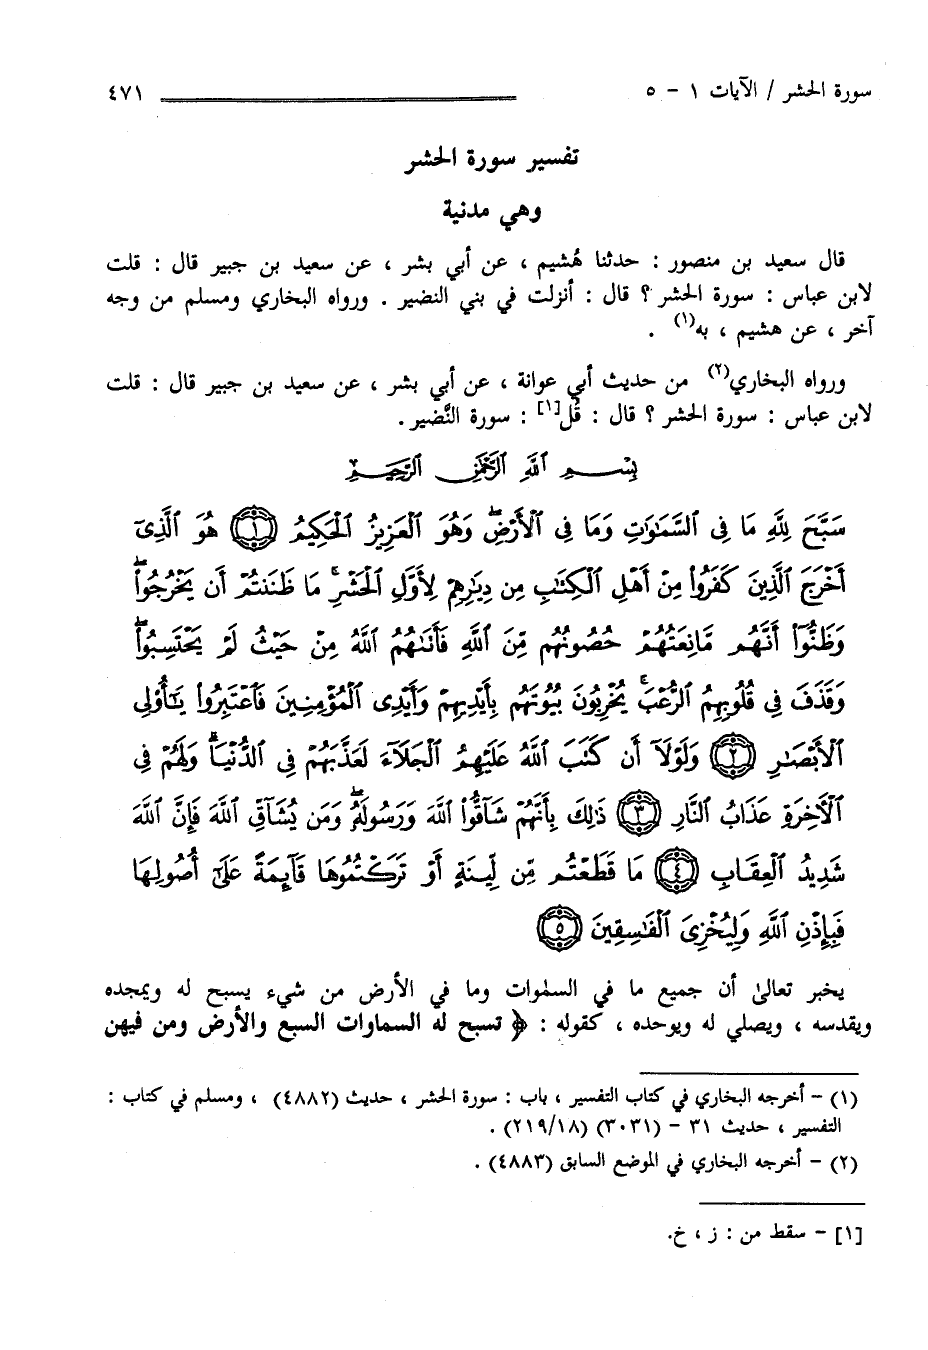 سورة الحشر / الآيات ١ - ٥ ٤٧١
تفسير سورة الحشر
وهي مدنية
قال سعيد بن منصور : حدثنا هُشيم ، عن أبي بشر ، عن سعيد بن جبير قال : قلت
لابن عباس : سورة الحشر ؟ قال : أنزلت في بني النضير . ورواه البخاري ومسلم من وجه
آخر ، عن هشيم ، به(١) .
ورواه البخاري(٢) من حديث أبي عوانة ، عن أبي بشر ، عن سعيد بن جبير قال : قلت
لابن عباس : سورة الحشر ؟ قال : قُل[١] : سورة النَّضير .
بِسْمِ ٱللَّهِ ٱلرَّحْمَٰنِ ٱلرَّحِيمِ
سَبَّحَ لِلَّهِ مَا فِى ٱلسَّمَٰوَٰتِ وَمَا فِى ٱلْأَرْضِۖ وَهُوَ ٱلْعَزِيزُ ٱلْحَكِيمُ ١ هُوَ ٱلَّذِىٓ
أَخْرَجَ ٱلَّذِينَ كَفَرُوا۟ مِنْ أَهْلِ ٱلْكِتَٰبِ مِن دِيَٰرِهِمْ لِأَوَّلِ ٱلْحَشْرِۚ مَا ظَنَنتُمْ أَن يَخْرُجُوا۟ۖ
وَظَنُّوٓا۟ أَنَّهُم مَّانِعَتُهُمْ حُصُونُهُم مِّنَ ٱللَّهِ فَأَتَىٰهُمُ ٱللَّهُ مِنْ حَيْثُ لَمْ يَحْتَسِبُوا۟ۖ
وَقَذَفَ فِى قُلُوبِهِمُ ٱلرُّعْبَۚ يُخْرِبُونَ بُيُوتَهُم بِأَيْدِيهِمْ وَأَيْدِى ٱلْمُؤْمِنِينَ فَٱعْتَبِرُوا۟ يَٰٓأُو۟لِى
ٱلْأَبْصَٰرِ ٢ وَلَوْلَآ أَن كَتَبَ ٱللَّهُ عَلَيْهِمُ ٱلْجَلَآءَ لَعَذَّبَهُمْ فِى ٱلدُّنْيَاۖ وَلَهُمْ فِى
ٱلْءَاخِرَةِ عَذَابُ ٱلنَّارِ ٣ ذَٰلِكَ بِأَنَّهُمْ شَآقُّوا۟ ٱللَّهَ وَرَسُولَهُۥۖ وَمَن يُشَآقِّ ٱللَّهَ فَإِنَّ ٱللَّهَ
شَدِيدُ ٱلْعِقَابِ ٤ مَا قَطَعْتُم مِّن لِّينَةٍ أَوْ تَرَكْتُمُوهَا قَآئِمَةً عَلَىٰٓ أُصُولِهَا
فَبِإِذْنِ ٱللَّهِ وَلِيُخْزِىَ ٱلْفَٰسِقِينَ ٥
يخبر تعالىٰ أن جميع ما في السمٰوات وما في الأرض من شيء يسبح له ويمجده
ويقدسه ، ويصلي له ويوحده ، كقوله : ﴿ تسبح له السماوات السبع والأرض ومن فيهن
(١) - أخرجه البخاري في كتاب التفسير ، باب : سورة الحشر ، حديث (٤٨٨٢) ، ومسلم في كتاب :
التفسير ، حديث ٣١ - (٣٠٣١) (٢١٩/١٨) .
(٢) - أخرجه البخاري في الموضع السابق (٤٨٨٣) .
[١] - سقط من : ز ، خ.